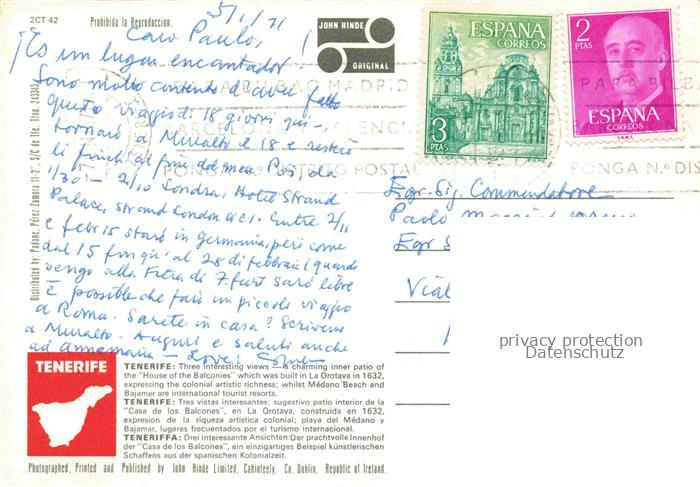 2CT 42
Prohibida la Reproduccion.
JOHN HINDE
ORIGINAL
5/1/71
Caro Paulo,
¡Es un lugar encantador!
Sono molto contento d'aver fatto
questo viaggio di 18 giorni qui —
tornarò a Muralto e 18 e resterò
li finchè al fin del mese. Poi, da
1/30 — 2/10 London. Hotel Strand
Palace, Strand London WC1. Entre 2/11
e febr 15 starò in Germania, però come
dal 15 fin qu' al 28 di febbraio (quando
vengo alla Fiera di F.furt sarò libre
È possibile che farò un piccolo viaggio
a Roma. Sarete in casa? Scriveme
a Muralto. Auguri e saluti anche
ad Annemarie — Love!
ESPAÑA
CORREOS
3
PTAS
2
PTAS
ESPAÑA
CORREOS
F.N.M.T.
MADRID
BARCELONA
VALENCIA
PONGA N.º DISTRITO POSTAL
PARA BILBAO
PONGA N.º DIS
Egr. Sig. Commendatore
Paolo
Egr S
Vial
privacy protection
Datenschutz
Distributed by: Padane, Pérez Zamora 11-2°. S/C de Tfe. Tfno. 243345
TENERIFE
TENERIFE: Three interesting views — a charming inner patio of
the "House of the Balconies" which was built in La Orotava in 1632,
expressing the colonial artistic richness; whilst Médano Beach and
Bajamar are international tourist resorts.
TENERIFE: Tres vistas interesantes; sugestivo patio interior de la
"Casa de los Balcones", en La Orotava, construida en 1632,
expresion de la riqueza artística colonial; playa del Médano y
Bajamar, lugares frecuentados por el turismo internacional.
TENERIFFA: Drei interessante Ansichten: Der prachtvolle Innenhof
der "Casa de los Balcones", ein einzigartiges Beispiel künstlerischen
Schaffens aus der spanischen Kolonialzeit.
Photographed, Printed and Published by John Hinde Limited, Cabinteely, Co. Dublin, Republic of Ireland.